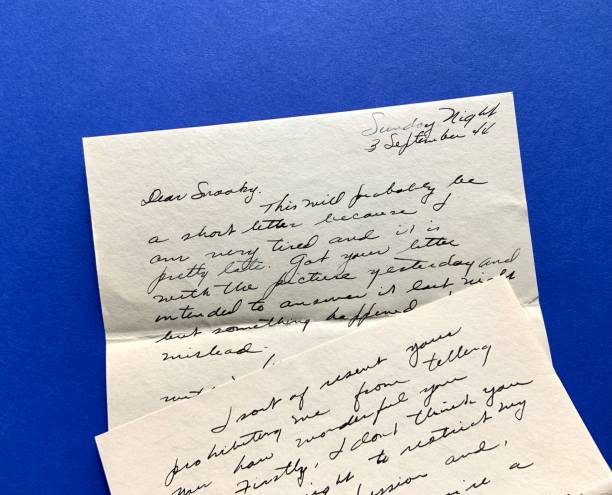 Sunday Night
3 September 44
Dear Snooky,
This will probably be
a short letter because I
am very tired and it is
pretty late. Got your letter
with the picture yesterday and
intended to answer it last night
but something happened
instead.
I sort of resent your
prohibiting me from telling
you how wonderful you
Firstly, I don't think you
right to restrict my
and,
a